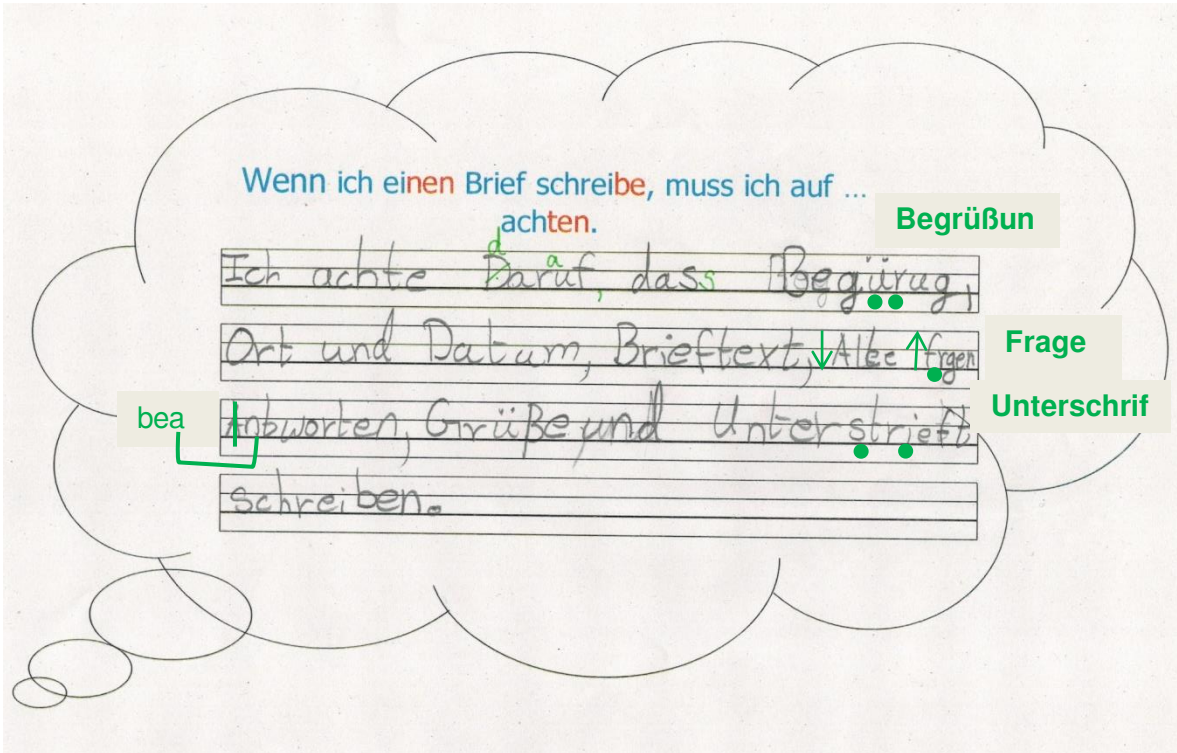 Wenn ich einen Brief schreibe, muss ich auf ...
achten.
Begrüßun
d a
Ich achte Daruf, dass Begürug,
Ort und Datum, Brieftext, Alle frgen
Frage
Unterschrif
bea
Antworten, Grüße und Unterstrieft
schreiben.